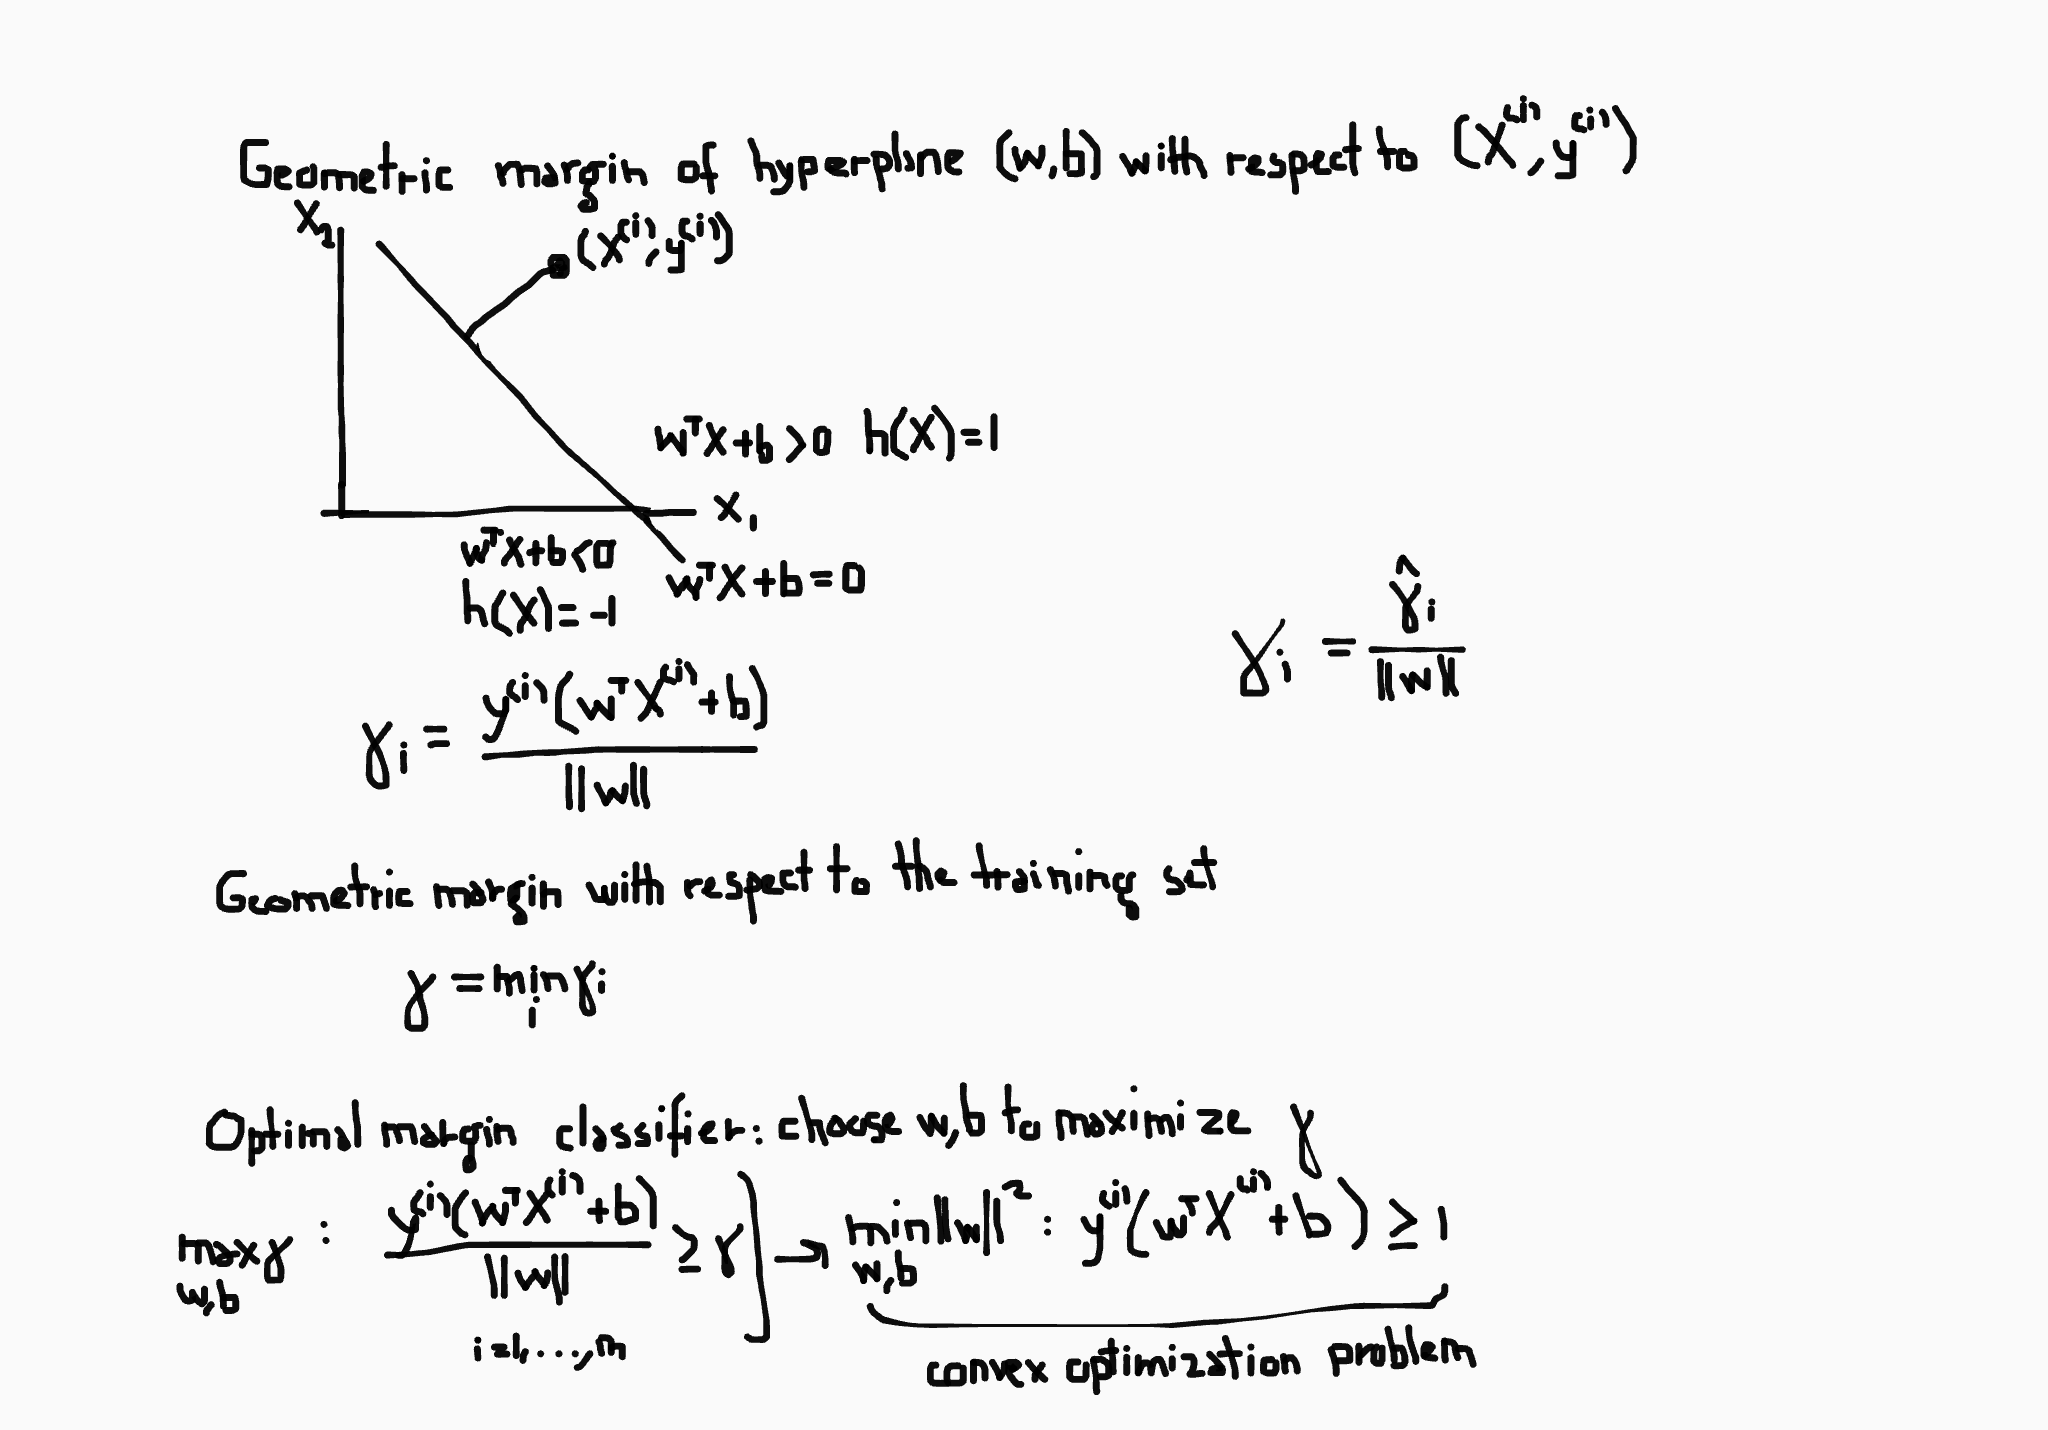 Geometric margin of hyperplane (w,b) with respect to (X⁽ⁱ⁾, y⁽ⁱ⁾)
X₂
(X⁽ⁱ⁾, y⁽ⁱ⁾)
wᵀX+b>0 h(X)=1
X₁
wᵀX+b<0
wᵀX+b=0
h(X)=-1
γᵢ = γ̂ᵢ / ||w||
γᵢ = y⁽ⁱ⁾(wᵀX⁽ⁱ⁾+b) / ||w||
Geometric margin with respect to the training set
γ = min γᵢ
i
Optimal margin classifier: choose w,b to maximize γ
max γ : y⁽ⁱ⁾(wᵀX⁽ⁱ⁾+b) / ||w|| ≥ γ ] → min ||w||² : y⁽ⁱ⁾(wᵀX⁽ⁱ⁾+b) ≥ 1
w,b w,b
i=1,...,m
convex optimization problem